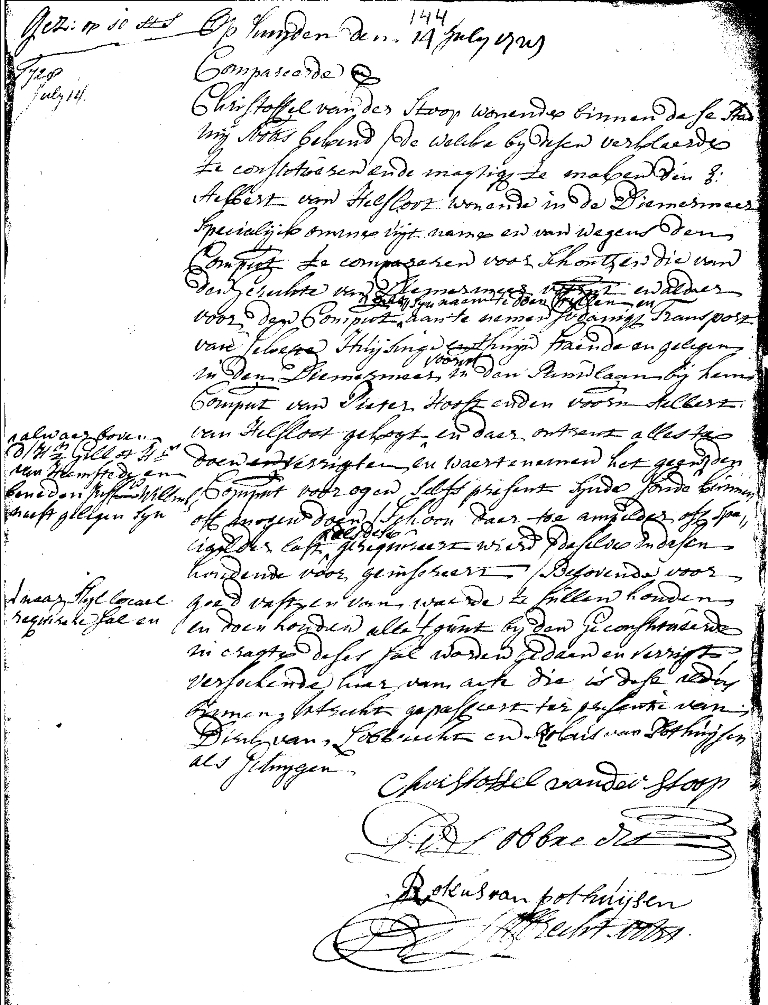 144
Gez: op
Op huyden den 14 July 1728
1728
July 14.
Compareerde
Christoffel van der Stoop wonende binnen dese Stad
mij Nots bekend, de welcke bij desen verklaerde
te constitueren ende magtig te maken den
Aelbert van Helsloot wonende in de Diemermeer
Specialijck omme uijt name en van wegens den
Comput te compareren voor Schout en die van
den gerechte van Diemermeer en aldaer
voor den Comput aan te nemen Transport
van sekere Huijsinge staende en gelegen
in den Diemermeer in den laan bij hem
Comput van Pieter Hooft ende voorn Aelbert
van Helsloot gekogt, en daer ontrent alles te
doen en verrigten en waer te nemen het geen den
Comput voor ogen selfs present sijnde soude kunnen
off mogen doen, Schoon daer toe ampelder off spe
cialder last gerequireert wierd, deselve in desen
houdende voor geinsereert, Belovende voor
goed vast en van waerde te sullen houden
en doen houden alle 't gunt bij den geconstitueerde
in cragte deses sal worden gedaen en verrigt
versoekende hier van acte die is dese aldus
binnen Utrecht gepasseert ter presentie van
Dirk van Lobbrecht en Rokus van Pothuijsen
als getuijgen
alwaer boven
van Heemstede en
beneden Willem
heeft gelegen sijn
maer stijl locael
requireren sal en
Christoffel vander Stoop
D V Lobbrecht
Rokus van pothuijsen